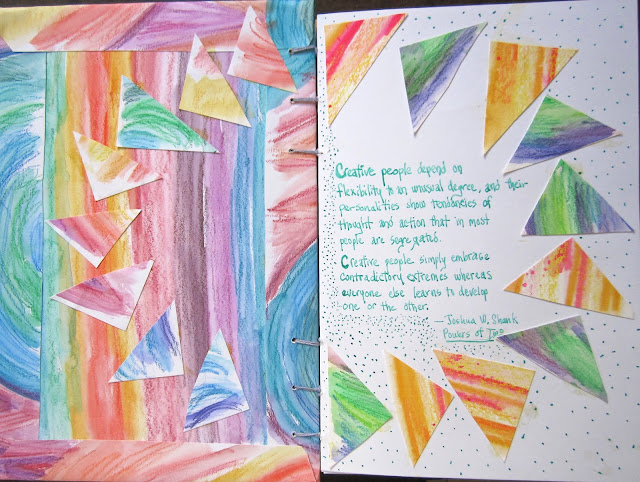 Creative people depend on
flexibility to an unusual degree, and their
personalities show tendencies of
thought and action that in most
people are segregated.
Creative people simply embrase
contradictory extremes whereas
everyone else learns to develop
one or the other.
— Joshua W. Shenk
Powers of Two